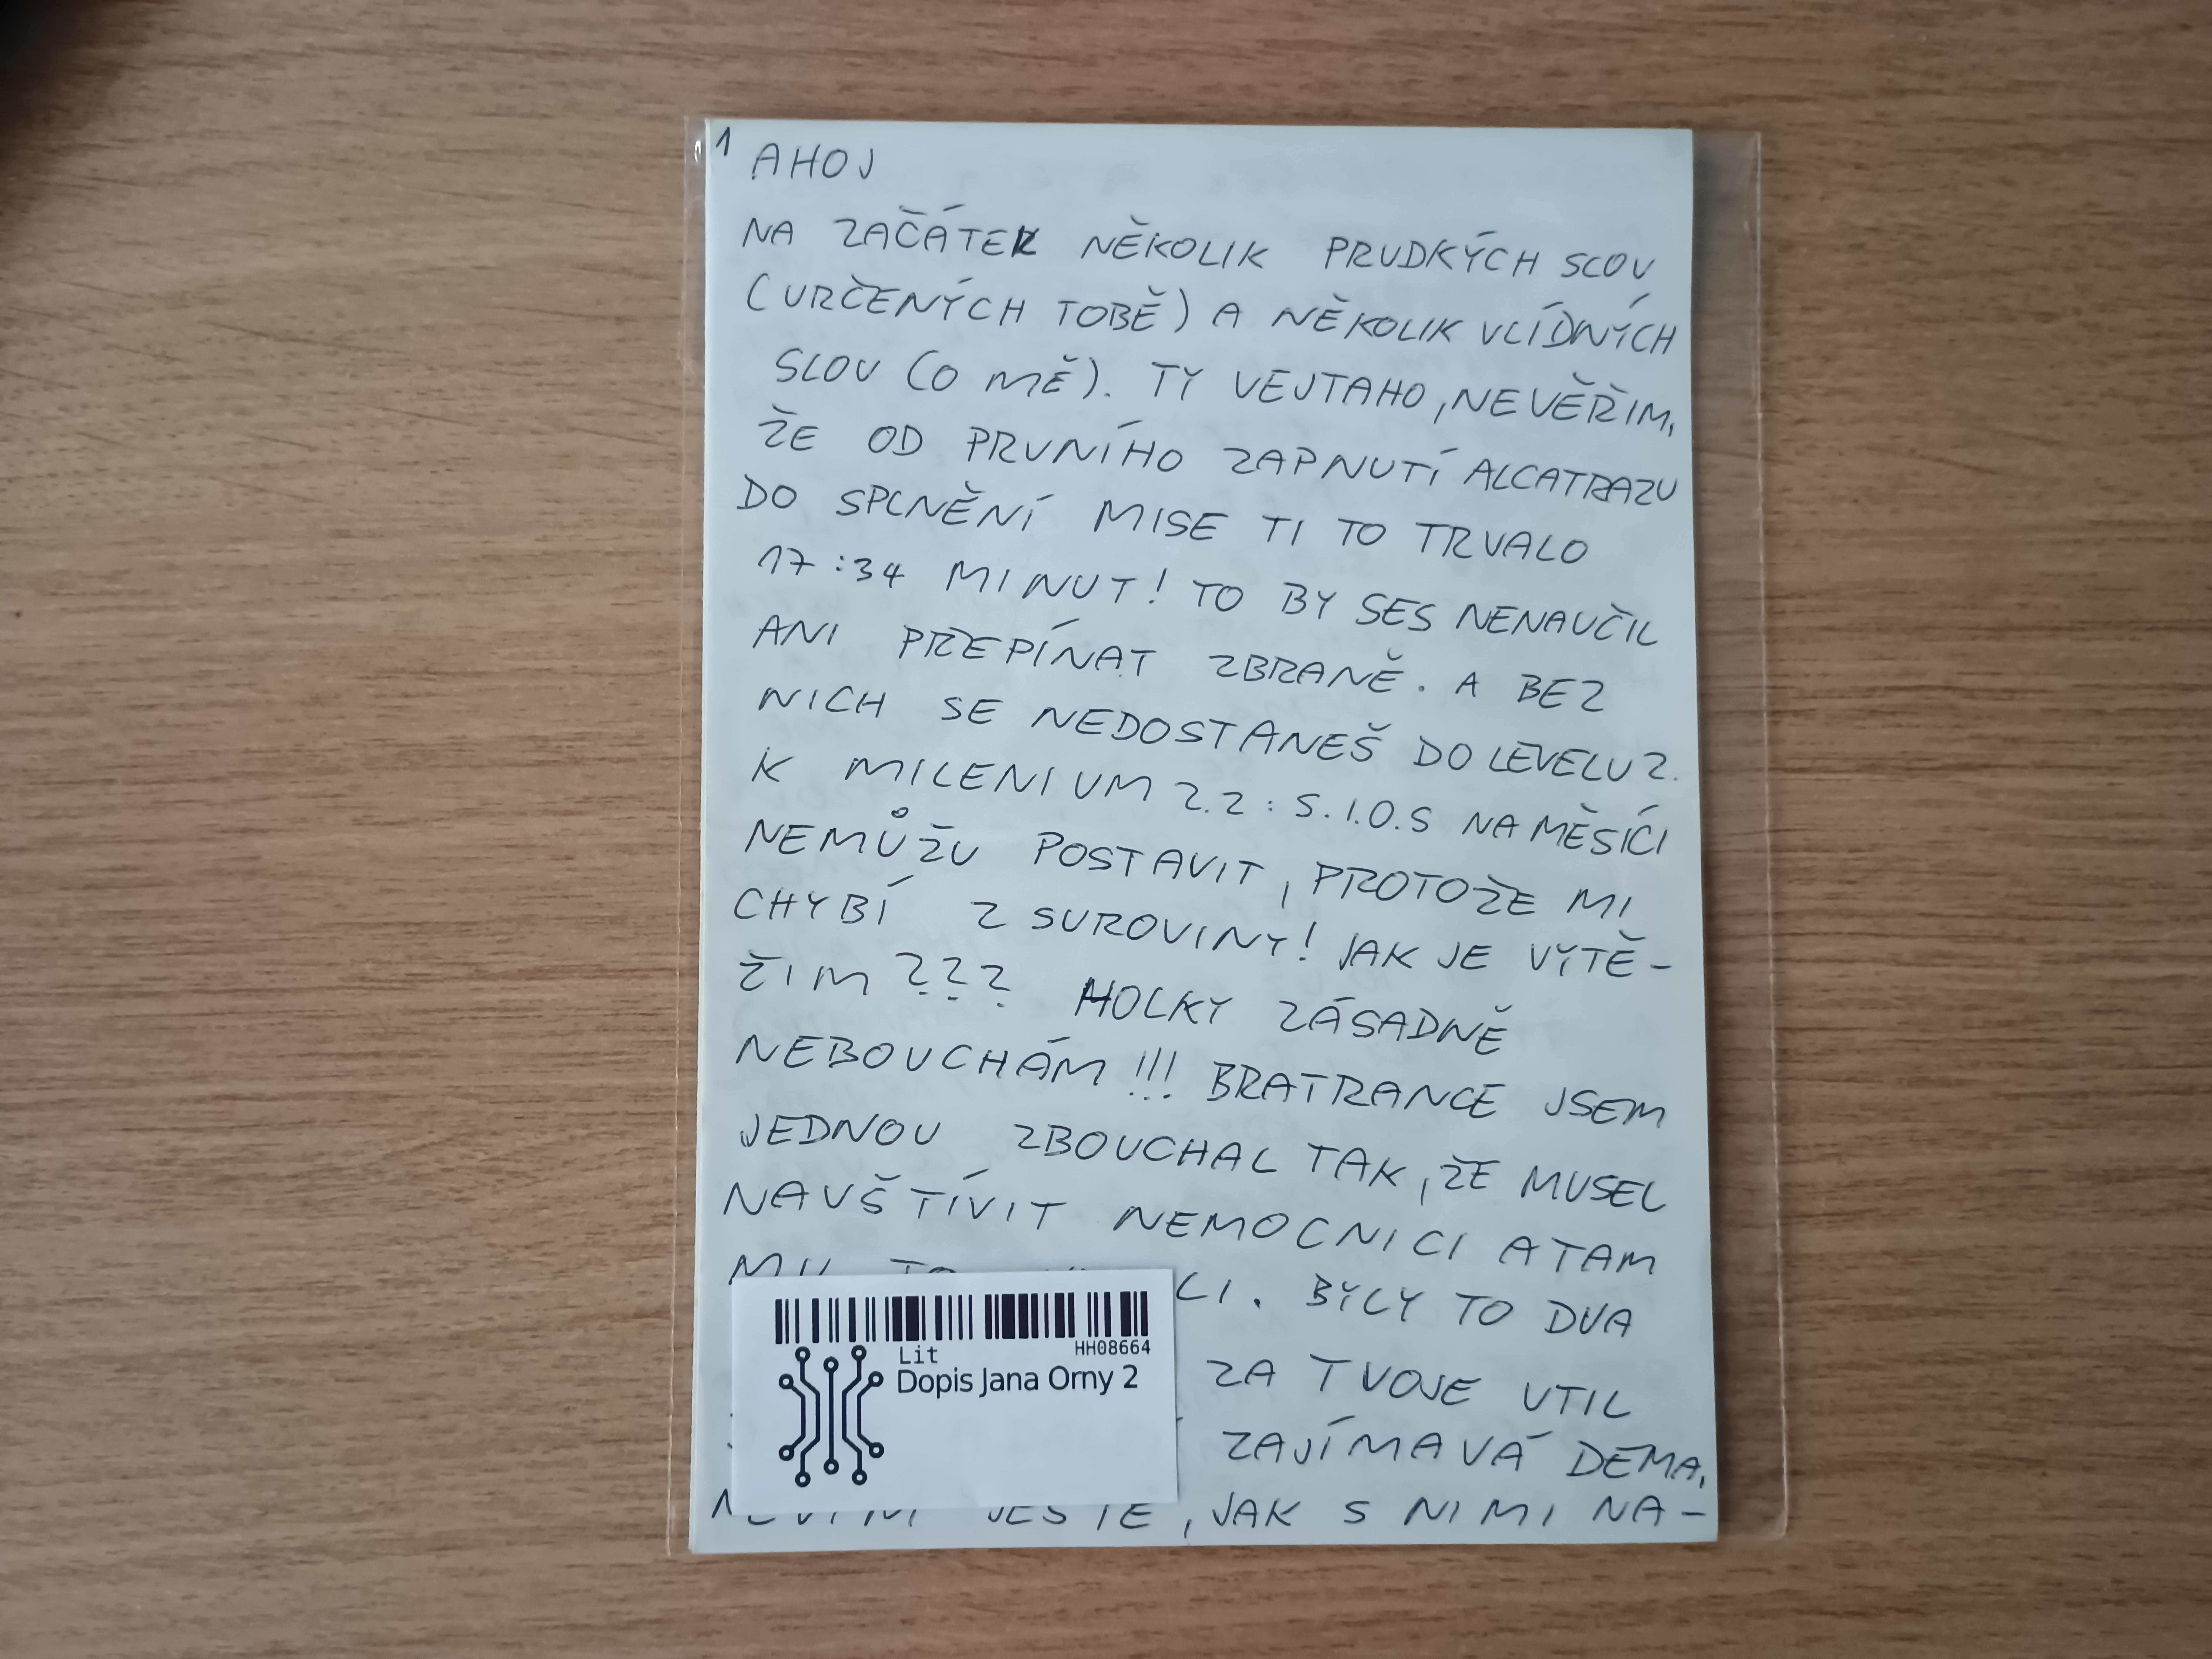 1
AHOJ
NA ZAČÁTEK NĚKOLIK PRUDKÝCH SLOV
(URČENÝCH TOBĚ) A NĚKOLIK VLÍDNÝCH
SLOV (O MĚ). TY VEJTAHO, NEVĚŘIM,
ŽE OD PRVNÍHO ZAPNUTÍ ALCATRAZU
DO SPLNĚNÍ MISE TI TO TRVALO
17:34 MINUT! TO BY SES NENAUČIL
ANI PŘEPÍNAT ZBRANĚ. A BEZ
NICH SE NEDOSTANEŠ DO LEVELU 2.
K MILENIUM 2.2: S.I.O.S NA MĚSÍCI
NEMŮŽU POSTAVIT, PROTOŽE MI
CHYBÍ 2 SUROVINY! JAK JE VYTĚ-
ŽIM??? HOLKY ZÁSADNĚ
NEBOUCHÁM!!! BRATRANCE JSEM
JEDNOU ZBOUCHAL TAK, ŽE MUSEL
NAVŠTÍVIT NEMOCNICI A TAM
MU TO LI. BYLY TO DVA
ZA TVOJE UTIL
ZAJÍMAVÁ DEMA.
NEVIM JEŠTĚ, JAK S NIMI NA-
HH08664
Lit
Dopis Jana Orny 2